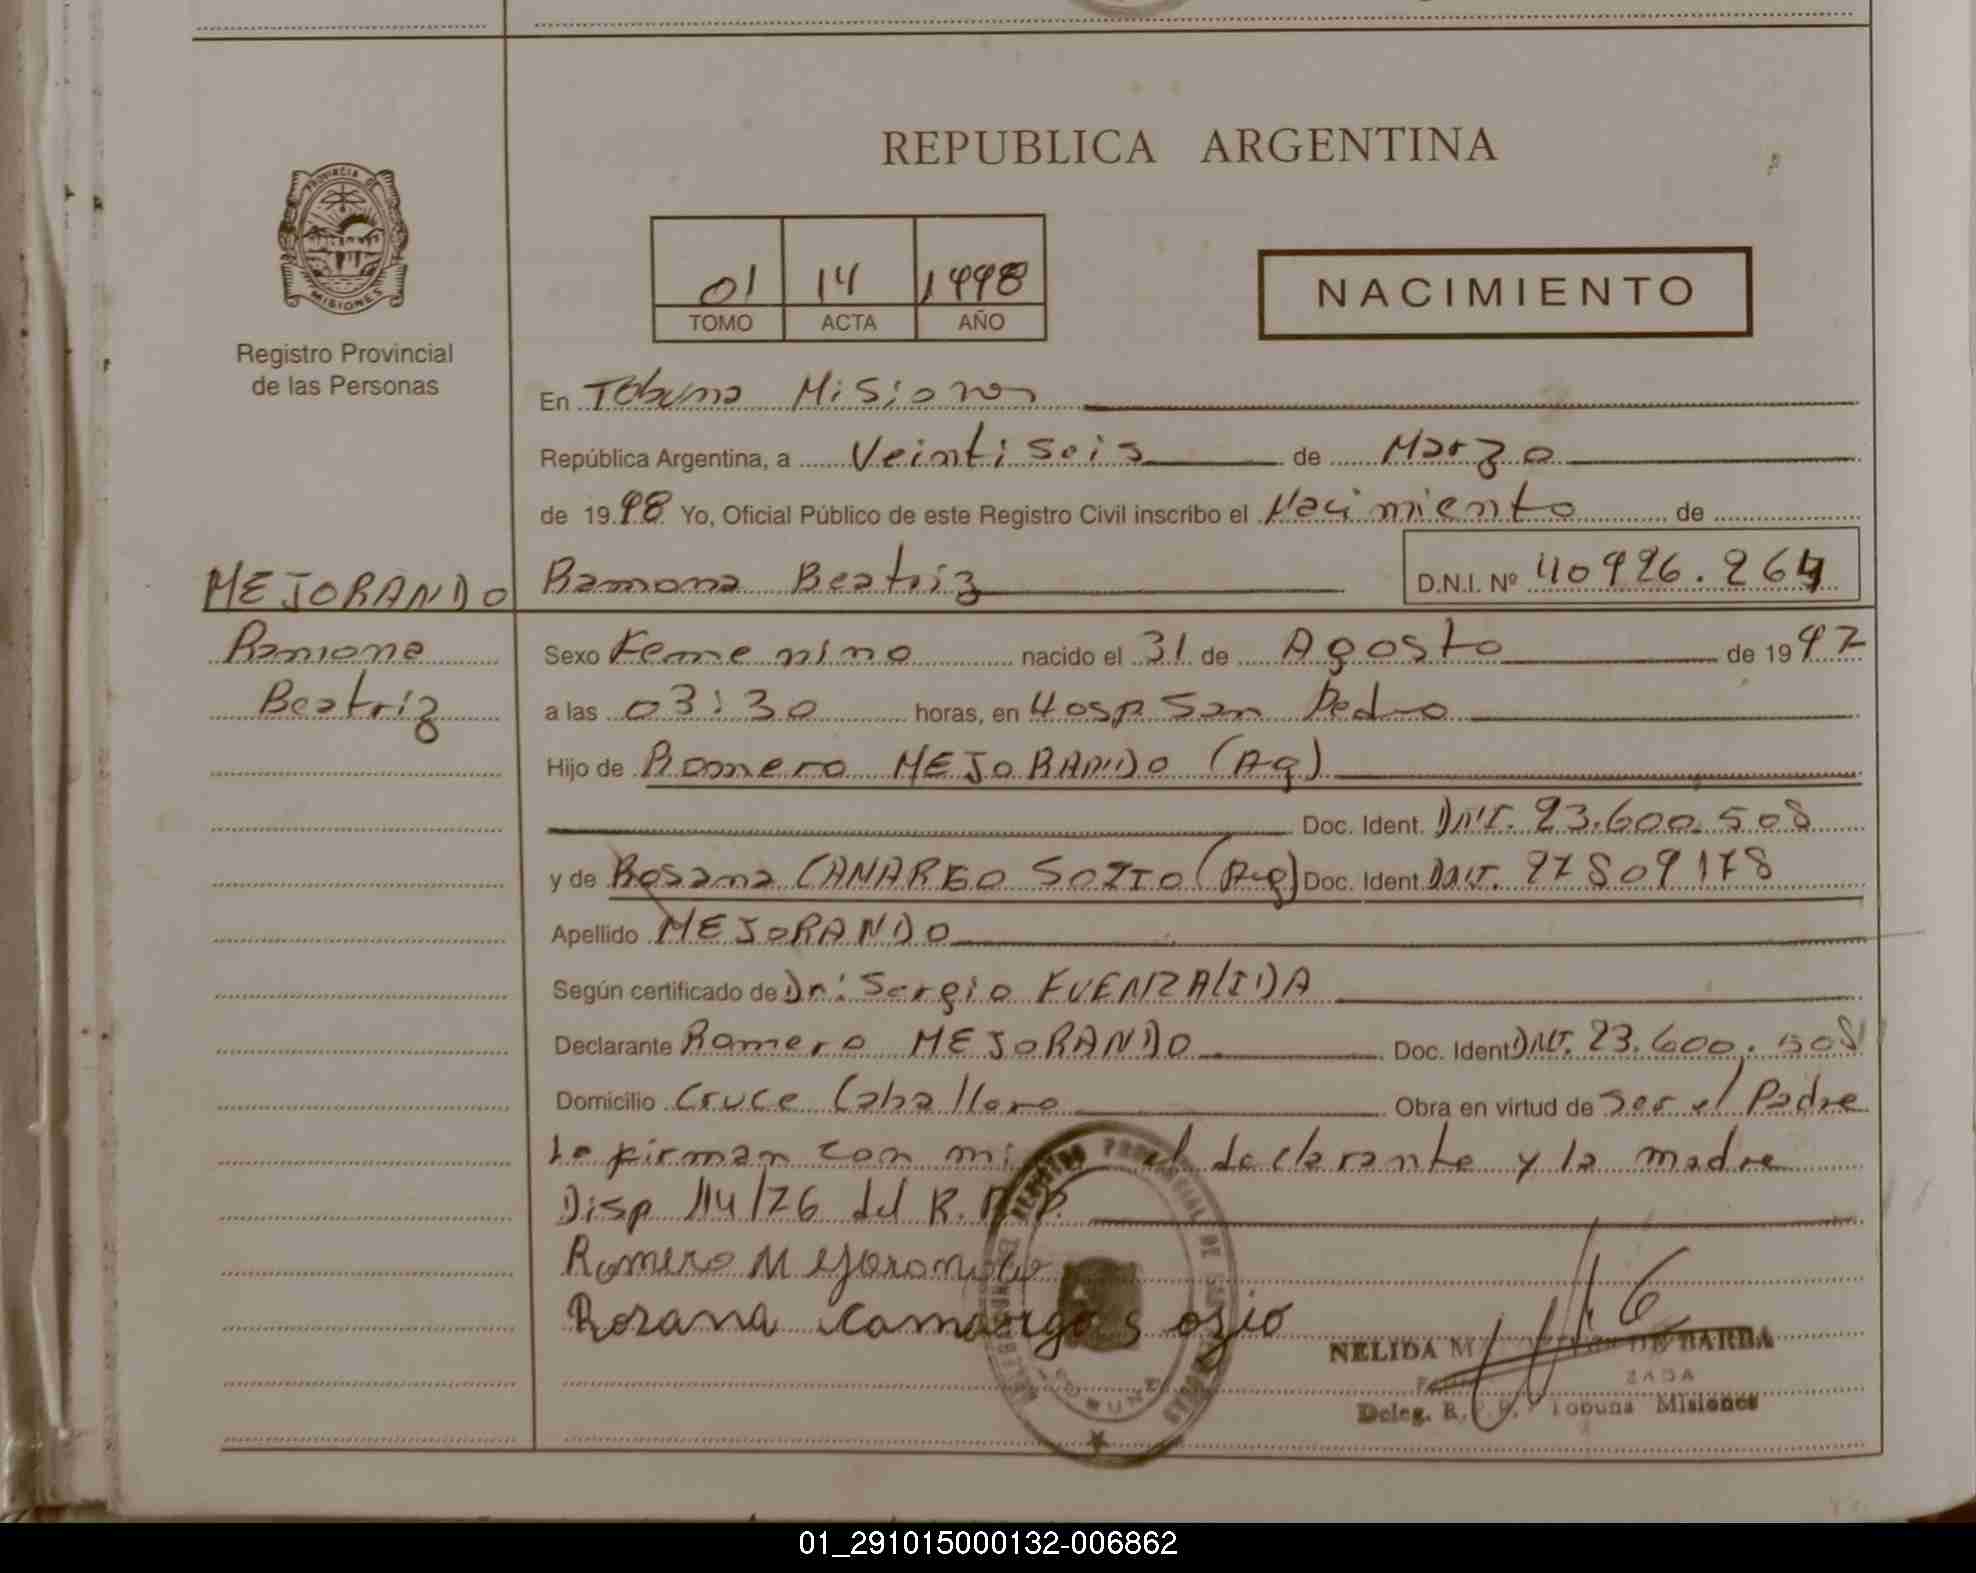 REPUBLICA ARGENTINA
PROVINCIA DE MISIONES
Registro Provincial
de las Personas
01 14 1998
TOMO ACTA AÑO
NACIMIENTO
En Tobuna Misiones
República Argentina, a Veintiseis de Marzo
de 1998 Yo, Oficial Público de este Registro Civil inscribo el Nacimiento de
MEJORANDO Ramona Beatriz D.N.I. Nº 40926.264
Ramona Sexo Femenino nacido el 31 de Agosto de 1997
Beatriz a las 03:30 horas, en Hosp San Pedro
Hijo de Romero MEJORANDO (Ag)
Doc. Ident. DNI. 23.600.508
y de Rosana CAMARGO SOZIO (Ag) Doc. Ident DNI. 27809178
Apellido MEJORANDO
Según certificado de Dr: Sergio FUENZALIDA
Declarante Romero MEJORANDO Doc. Ident DNI. 23.600.508
Domicilio Cruce Caballero Obra en virtud de Ser el Padre
Le firman con mi el declarante y la madre
Disp 114/76 del R.P.P.
Romero Mejorando
Rozana Camargo Sozio
REGISTRO PROVINCIAL DE LAS PERSONAS
NELIDA DE BARBA
Deleg. R.P.P. Tobuna Misiones
01_291015000132-006862